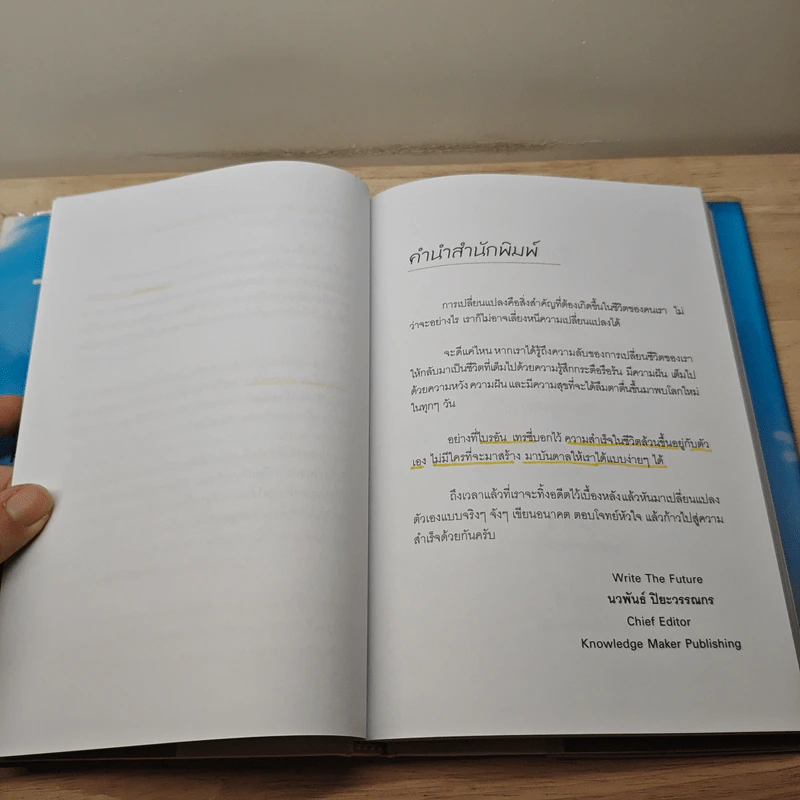 คำนำสำนักพิมพ์
การเปลี่ยนแปลงคือสิ่งสำคัญที่ต้องเกิดขึ้นในชีวิตของคนเรา ไม่
ว่าจะอย่างไร เราก็ไม่อาจเลี่ยงหนีความเปลี่ยนแปลงได้
จะดีแค่ไหน หากเราได้รู้ถึงความลับของการเปลี่ยนชีวิตของเรา
ให้กลับมาเป็นชีวิตที่เต็มไปด้วยความรู้สึกกระตือรือร้น มีความฝัน เต็มไป
ด้วยความหวัง ความฝัน และมีความสุขที่จะได้ลืมตาตื่นขึ้นมาพบโลกใหม่
ในทุกๆ วัน
อย่างที่ไบรอัน เทรซี่บอกไว้ ความสำเร็จในชีวิตล้วนขึ้นอยู่กับตัว
เอง ไม่มีใครที่จะมาสร้าง มาบันดาลให้เราได้แบบง่ายๆ ได้
ถึงเวลาแล้วที่เราจะทิ้งอดีตไว้เบื้องหลังแล้วหันมาเปลี่ยนแปลง
ตัวเองแบบจริงๆ จังๆ เขียนอนาคต ตอบโจทย์หัวใจ แล้วก้าวไปสู่ความ
สำเร็จด้วยกันครับ
Write The Future
นวพันธ์ ปิยะวรรณกร
Chief Editor
Knowledge Maker Publishing